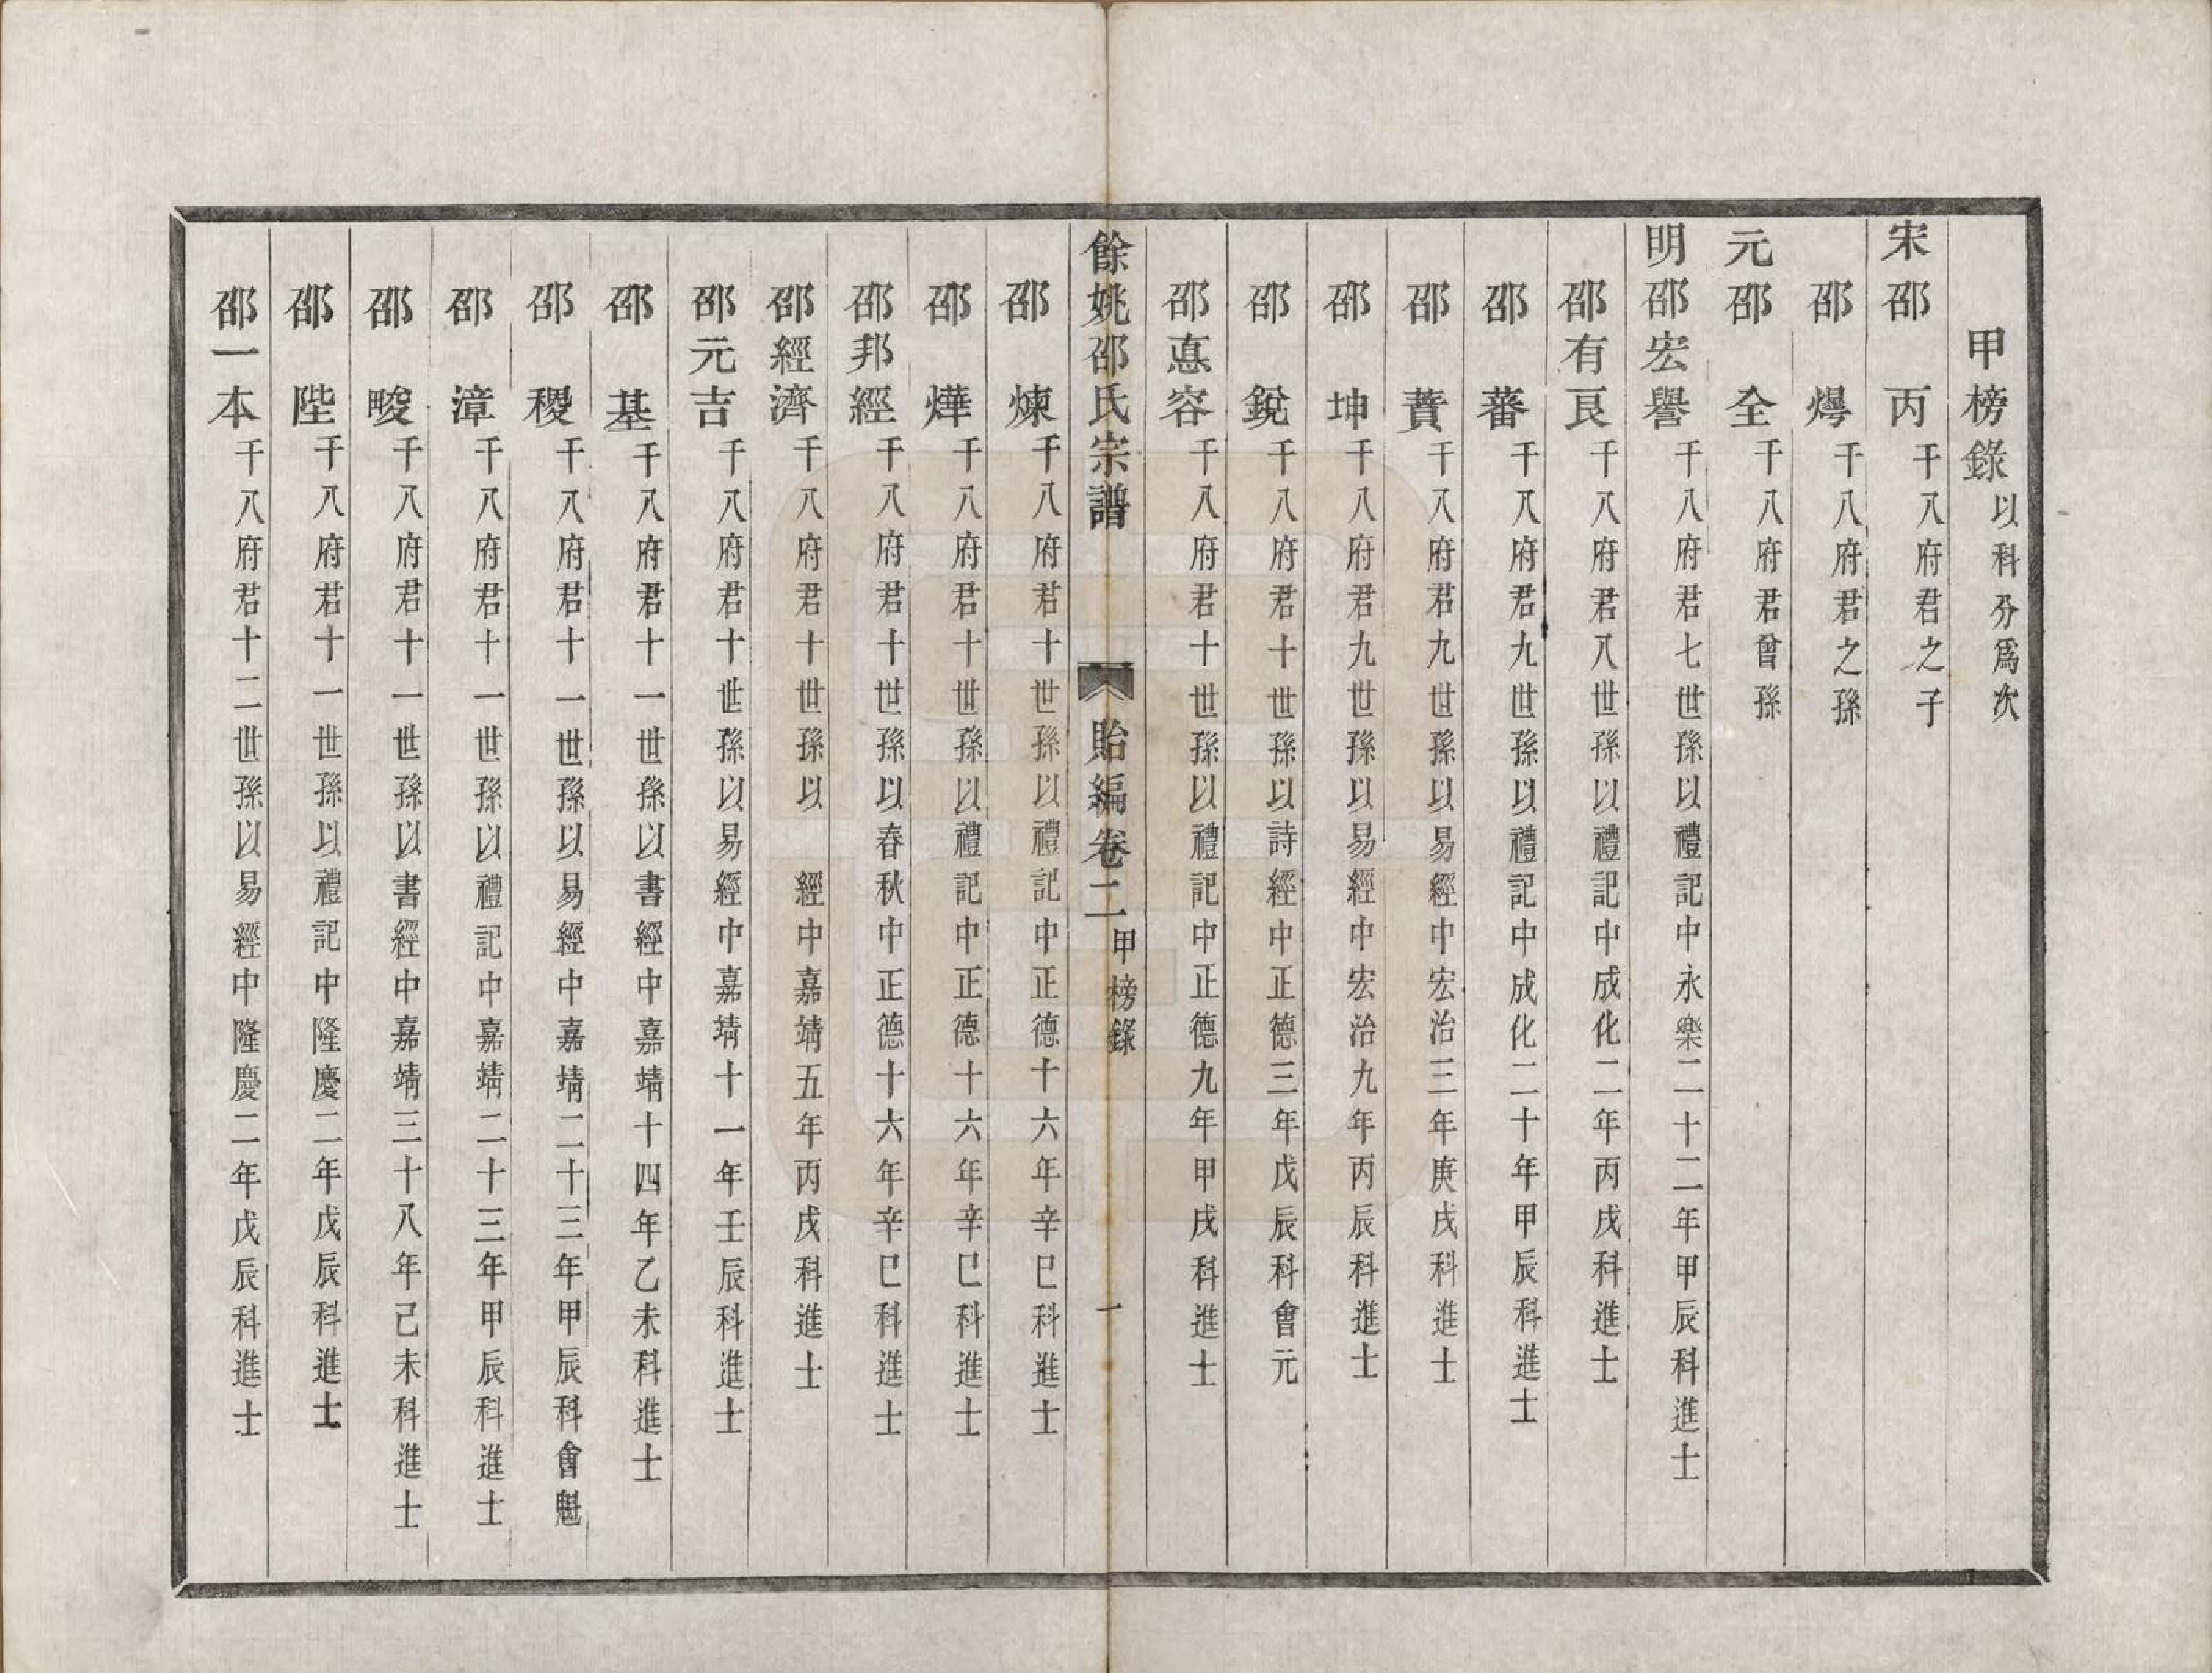 甲榜錄以科分爲次
宋邵丙千八府君之子
邵㷼千八府君之孫
元邵全千八府君曾孫
明邵宏譽千八府君七世孫以禮記中永樂二十二年甲辰科進士
邵有良千八府君八世孫以禮記中成化二年丙戌科進士
邵蕃千八府君九世孫以禮記中成化二十年甲辰科進士
邵蕡千八府君九世孫以易經中宏治三年庚戌科進士
邵坤千八府君九世孫以易經中宏治九年丙辰科進士
邵銳千八府君十世孫以詩經中正德三年戊辰科會元
邵悳容千八府君十世孫以禮記中正德九年甲戌科進士
餘姚邵氏宗譜 貽編卷二甲榜錄 一
邵煉千八府君十世孫以禮記中正德十六年辛巳科進士
邵燁千八府君十世孫以禮記中正德十六年辛巳科進士
邵邦經千八府君十世孫以春秋中正德十六年辛巳科進士
邵經濟千八府君十世孫以 經中嘉靖五年丙戌科進士
邵元吉千八府君十世孫以易經中嘉靖十一年壬辰科進士
邵基千八府君十一世孫以書經中嘉靖十四年乙未科進士
邵稷千八府君十一世孫以易經中嘉靖二十三年甲辰科會魁
邵漳千八府君十一世孫以禮記中嘉靖二十三年甲辰科進士
邵畯千八府君十一世孫以書經中嘉靖三十八年己未科進士
邵陛千八府君十一世孫以禮記中隆慶二年戊辰科進士
邵一本千八府君十二世孫以易經中隆慶二年戊辰科進士